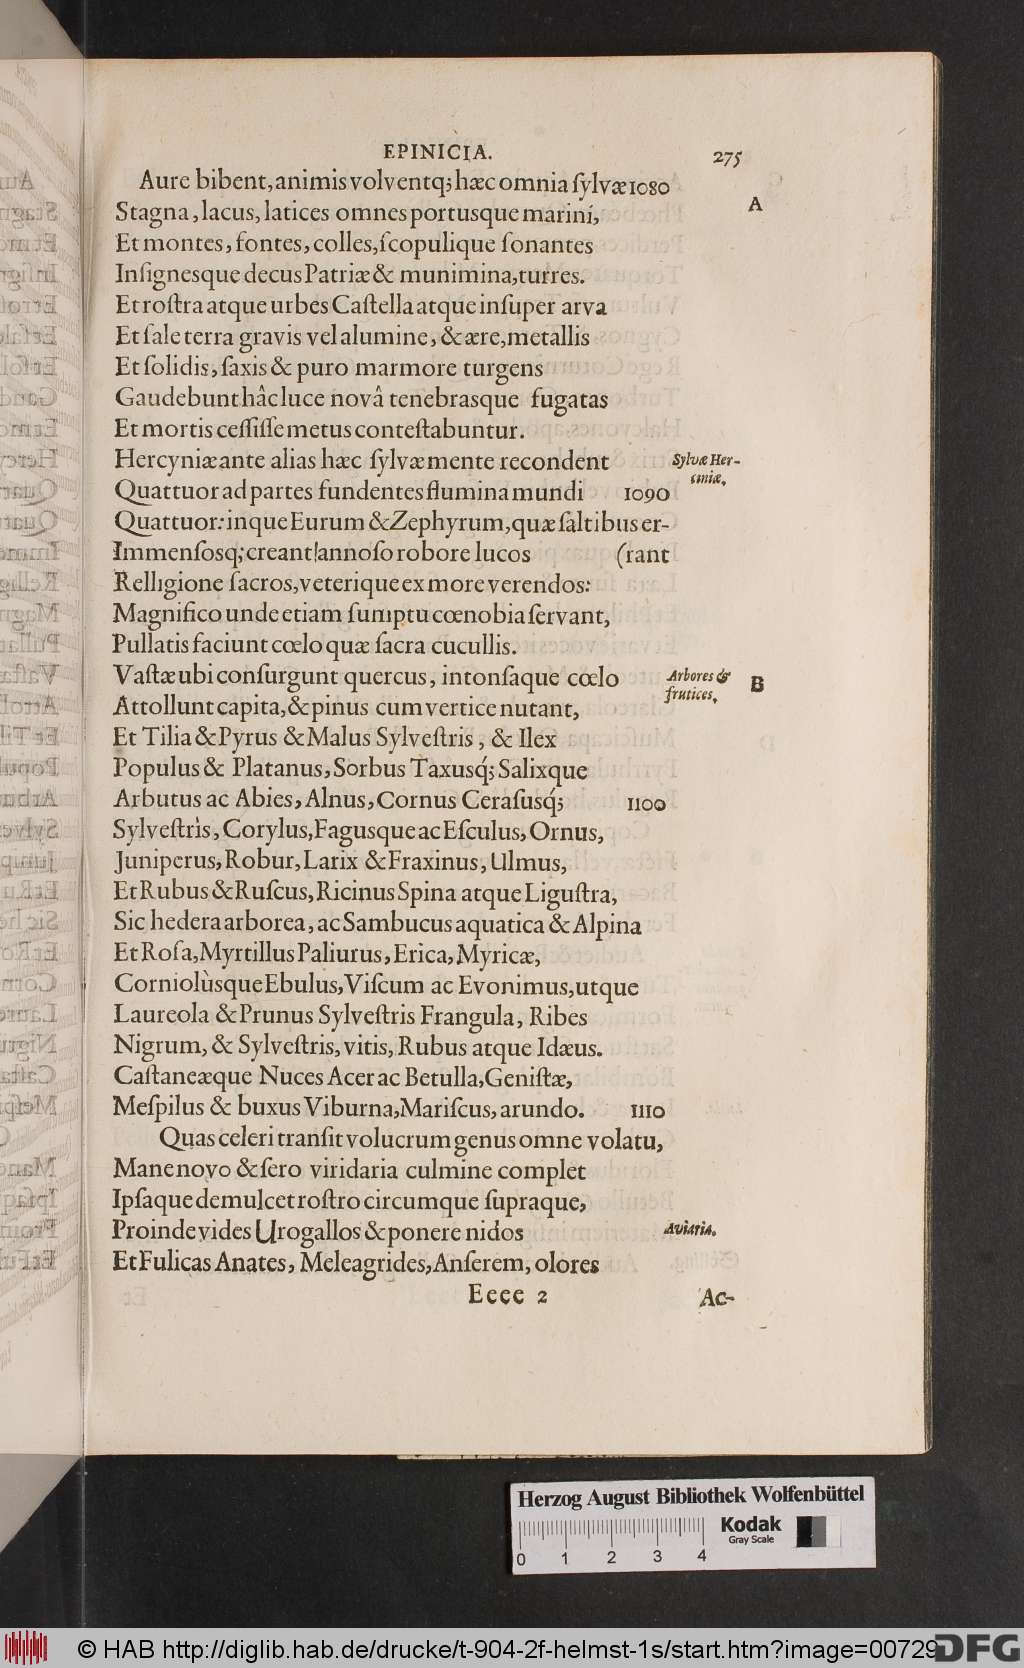 EPINICIA. 275
Aure bibent, animis volventq; hæc omnia ſylvæ 1080
A
Stagna, lacus, latices omnes portusque marini,
Et montes, fontes, colles, ſcopulique ſonantes
Inſignesque decus Patriæ & munimina, turres.
Et roſtra atque urbes Caſtella atque inſuper arva
Et ſale terra gravis vel alumine, & ære, metallis
Et ſolidis, ſaxis & puro marmore turgens
Gaudebunt hâc luce novâ tenebrasque fugatas
Et mortis ceſſiſſe metus conteſtabuntur.
Hercyniæ ante alias hæc ſylvæ mente recondent Sylvæ Her-
ciniæ,
Quattuor ad partes fundentes flumina mundi 1090
Quattuor: inque Eurum & Zephyrum, quæ ſaltibus er-
Immenſosq; creant annoſo robore lucos (rant
Relligione ſacros, veterique ex more verendos:
Magnifico unde etiam ſumptu cœnobia ſervant,
Pullatis faciunt cœlo quæ ſacra cucullis.
Vaſtæ ubi conſurgunt quercus, intonſaque cœlo Arbores & B
frutices,
Attollunt capita, & pinus cum vertice nutant,
Et Tilia & Pyrus & Malus Sylveſtris, & Ilex
Populus & Platanus, Sorbus Taxusq́; Salixque
Arbutus ac Abies, Alnus, Cornus Ceraſusq́; 1100
Sylveſtris, Corylus, Fagusque ac Eſculus, Ornus,
Juniperus, Robur, Larix & Fraxinus, Ulmus,
Et Rubus & Ruſcus, Ricinus Spina atque Liguſtra,
Sic hedera arborea, ac Sambucus aquatica & Alpina
Et Roſa, Myrtillus Paliurus, Erica, Myricæ,
Corniolùsque Ebulus, Viſcum ac Evonimus, utque
Laureola & Prunus Sylveſtris Frangula, Ribes
Nigrum, & Sylveſtris, vitis, Rubus atque Idæus.
Caſtaneæque Nuces Acer ac Betulla, Geniſtæ,
Meſpilus & buxus Viburna, Mariſcus, arundo. 1110
Quas celeri tranſit volucrum genus omne volatu,
Mane novo & ſero viridaria culmine complet
Ipſaque demulcet roſtro circumque ſupraque,
Proinde vides Urogallos & ponere nidos Aviaria.
Et Fulicas Anates, Meleagrides, Anſerem, olores
Eeee 2 Ac-
Herzog August Bibliothek Wolfenbüttel
Kodak
Gray Scale
0 1 2 3 4
© HAB http://diglib.hab.de/drucke/t-904-2f-helmst-1s/start.htm?image=00729
DFG